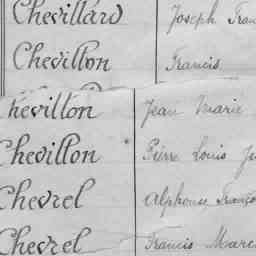 Chevillard Joseph Fran
Chevillon Francis
hevillon Jean Marie
Chevillon Pierre Louis Ju
Chevrel Alphonse Franço
Chevrel Francis Marc